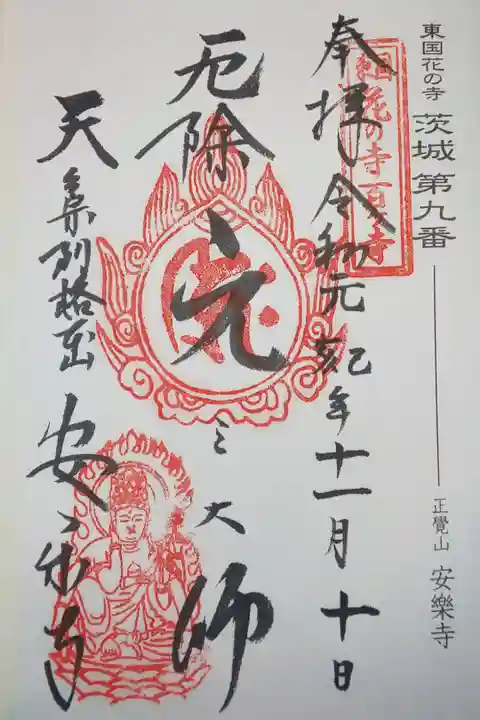 東国花の寺 茨城第九番 正覺山 安樂寺
花の寺百ヶ寺
奉拝 令和元己亥年十一月十日
厄除 元三大師
天台宗別格本山 安樂寺